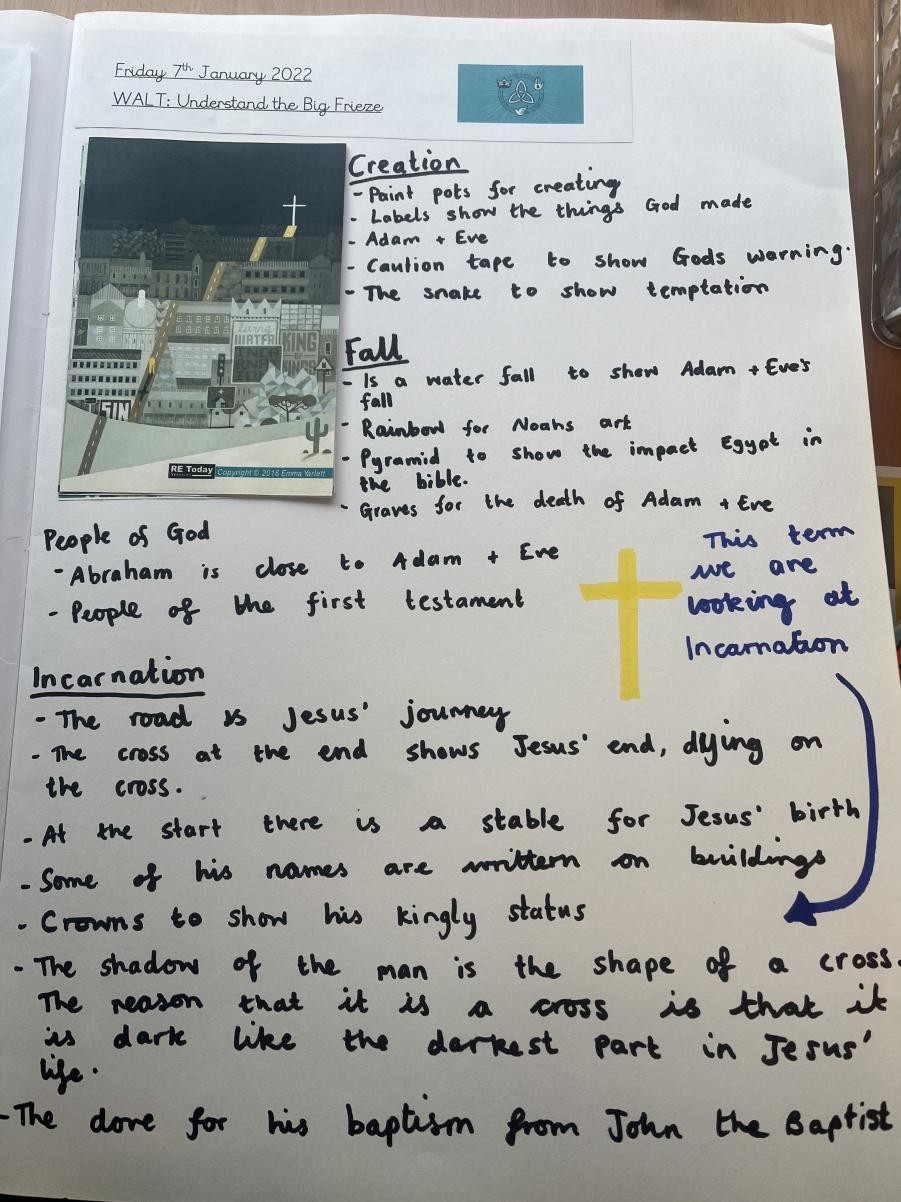 Friday 7th January 2022
WALT: Understand the Big Frieze
Creation
- Paint pots for creating
- Labels show the things God made
- Adam + Eve
- Caution tape to show Gods warning.
- The snake to show temptation
PRINCE
living
WATER
INCA
RNA
KING
OF
KINGS
SIN
RE Today
Copyright © 2016 Emma Yarlett
Fall
- Is a water fall to show Adam + Eve's
fall
- Rainbow for Noahs art
- Pyramid to show the impact Egypt in
the bible.
- Graves for the death of Adam + Eve
People of God
- Abraham is close to Adam + Eve
- People of the first testament
This term
we are
looking at
Incarnation
Incarnation
- The road is Jesus' journey
- The cross at the end shows Jesus' end, dying on
the cross.
- At the start there is a stable for Jesus' birth
- Some of his names are written on buildings
- Crowns to show his kingly status
- The shadow of the man is the shape of a cross.
The reason that it is a cross is that it
is dark like the darkest part in Jesus'
life.
- The dove for his baptism from John the Baptist